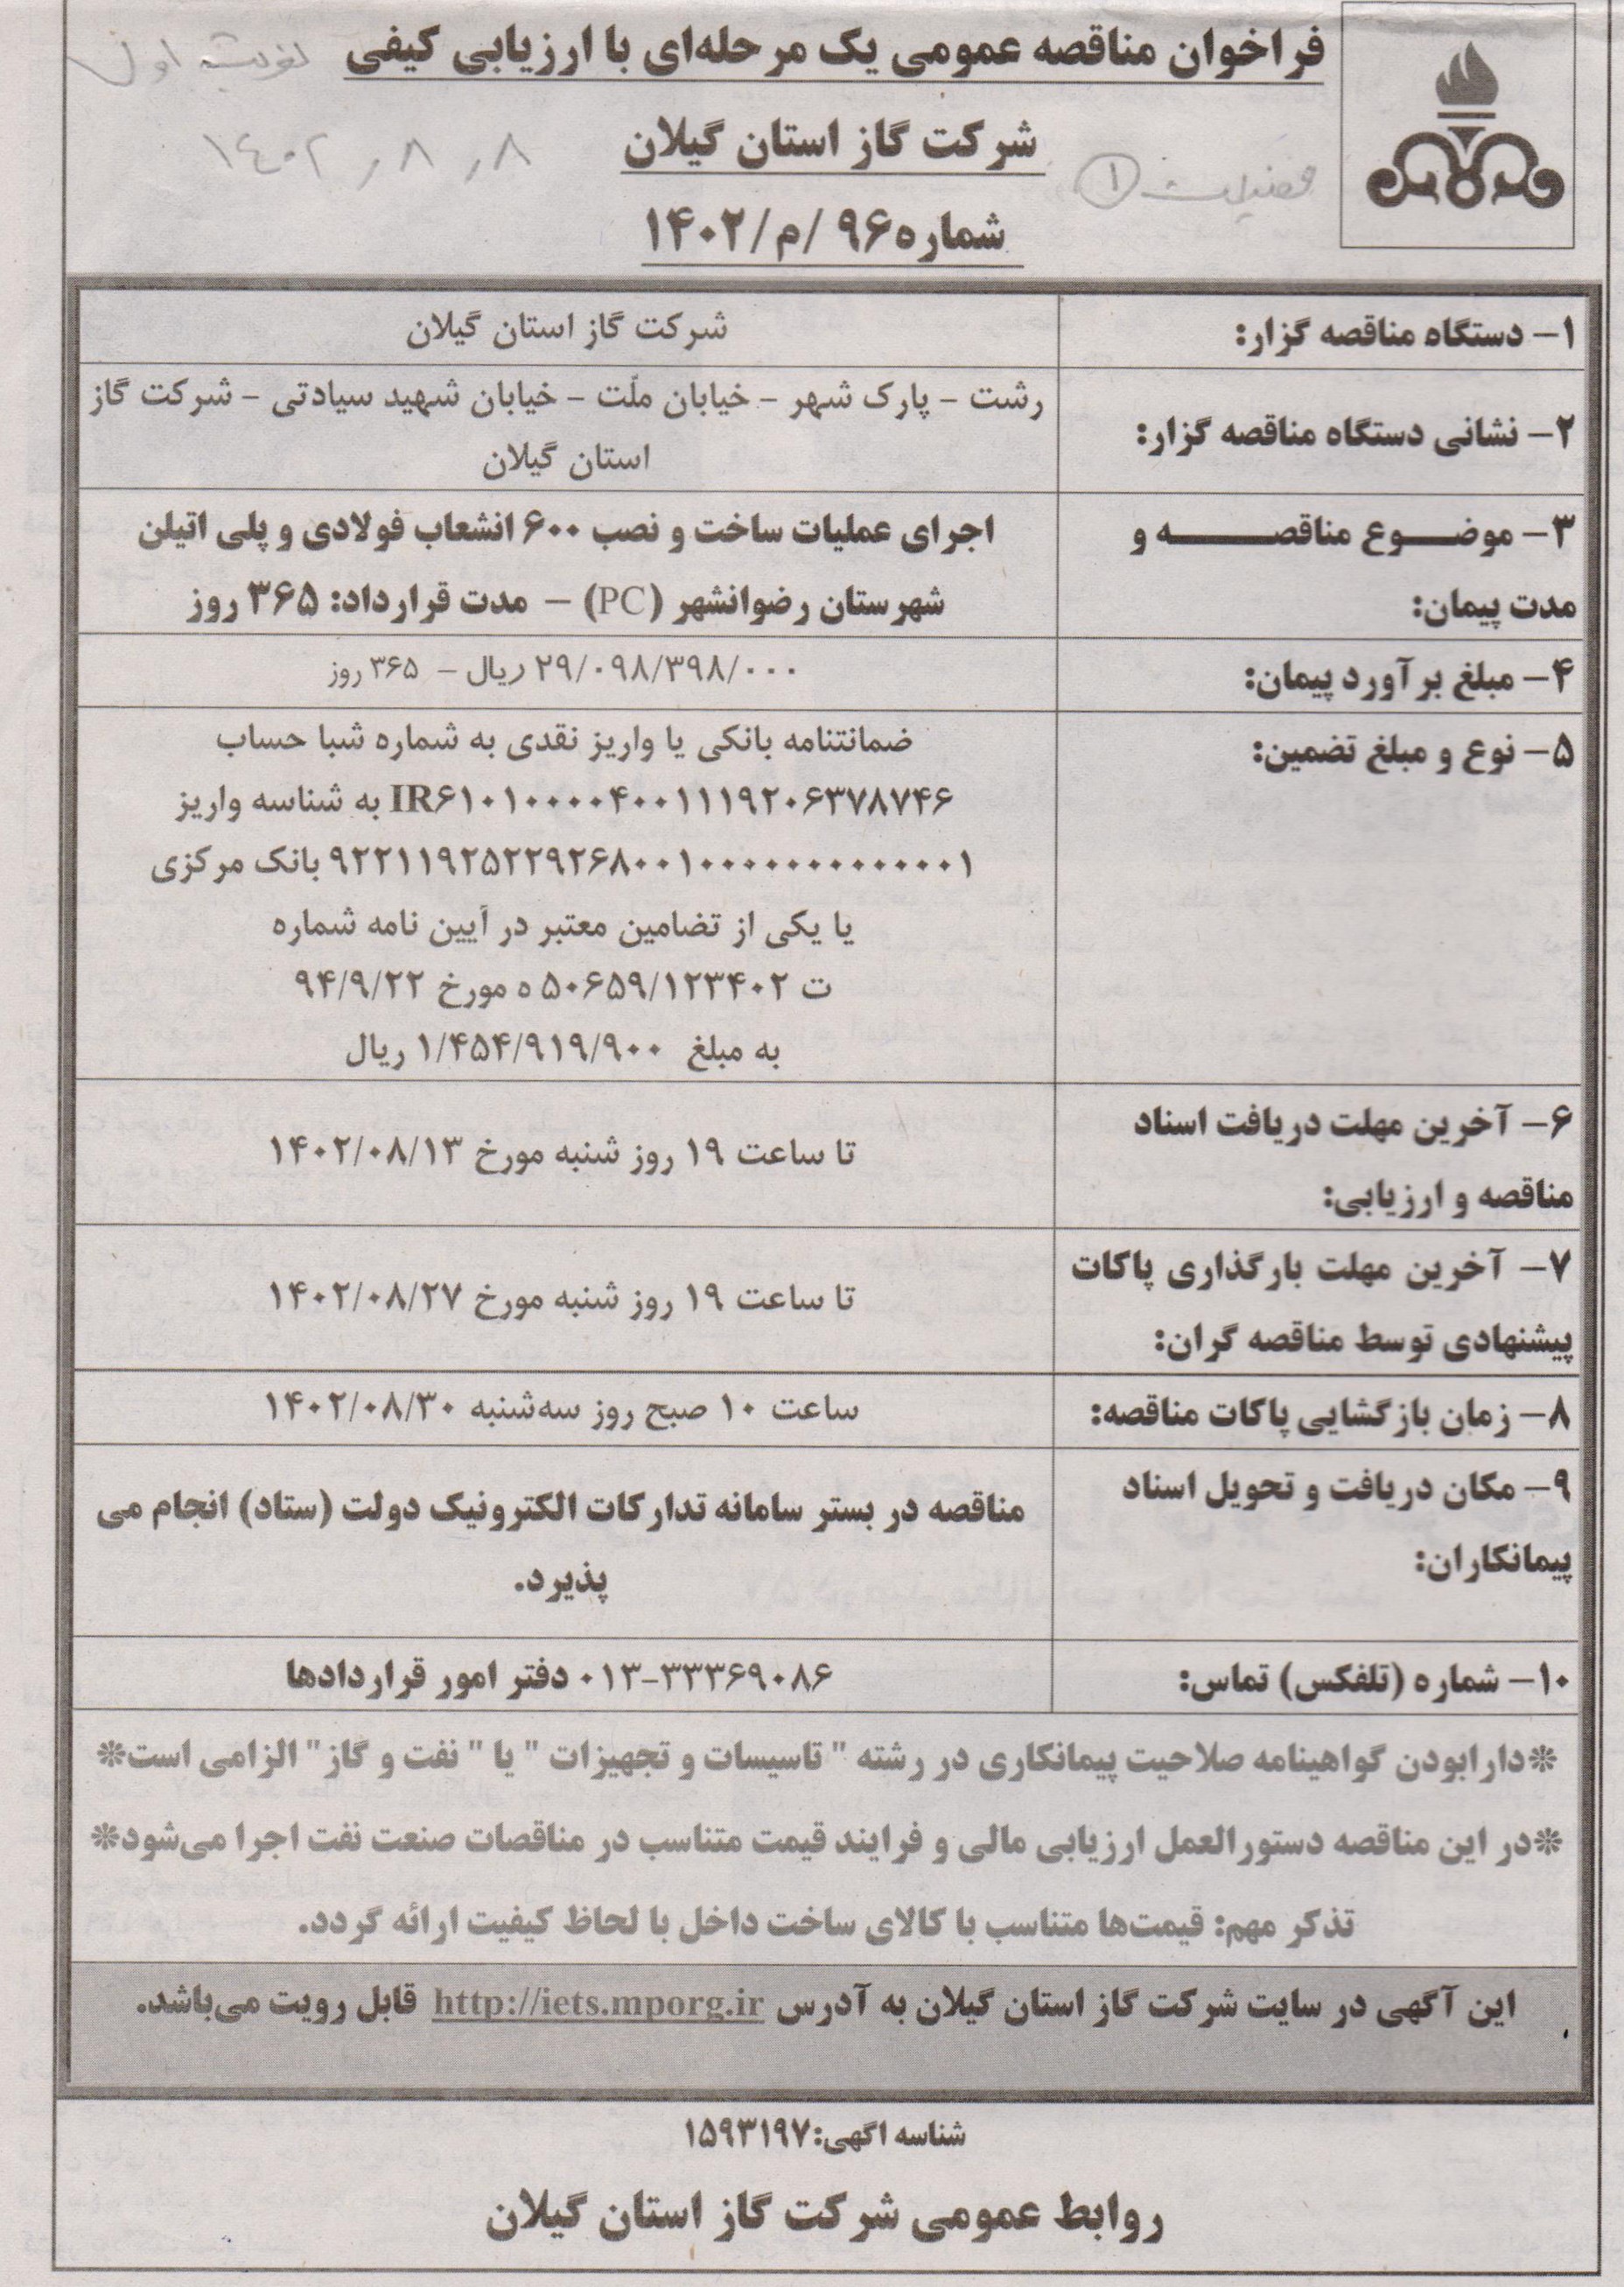 فراخوان مناقصه عمومی یک مرحله‌ای با ارزیابی کیفی
نوبت اول
شرکت گاز استان گیلان
۱۴۰۲ ر ۸ ر ۸
فضیلت ①
شماره ۹۶ /م/۱۴۰۲
۱- دستگاه مناقصه گزار:
شرکت گاز استان گیلان
۲- نشانی دستگاه مناقصه گزار:
رشت - پارک شهر - خیابان ملّت - خیابان شهید سیادتی - شرکت گاز
استان گیلان
۳- موضوع مناقصه و
مدت پیمان:
اجرای عملیات ساخت و نصب ۶۰۰ انشعاب فولادی و پلی اتیلن
شهرستان رضوانشهر (PC) – مدت قرارداد: ۳۶۵ روز
۴- مبلغ برآورد پیمان:
۲۹/۰۹۸/۳۹۸/۰۰۰ ریال - ۳۶۵ روز
۵- نوع و مبلغ تضمین:
ضمانتنامه بانکی یا واریز نقدی به شماره شبا حساب
IR۶۱۰۱۰۰۰۰۴۰۰۱۱۱۹۲۰۶۳۷۸۷۴۶ به شناسه واریز
۹۲۲۱۱۹۲۵۲۲۹۲۶۸۰۰۱۰۰۰۰۰۰۰۰۰۰۰۰۰۱ بانک مرکزی
یا یکی از تضامین معتبر در آیین نامه شماره
ت ۵۰۶۵۹/۱۲۳۴۰۲ ه مورخ ۹۴/۹/۲۲
به مبلغ ۱/۴۵۴/۹۱۹/۹۰۰ ریال
۶- آخرین مهلت دریافت اسناد
مناقصه و ارزیابی:
تا ساعت ۱۹ روز شنبه مورخ ۱۴۰۲/۰۸/۱۳
۷- آخرین مهلت بارگذاری پاکات
پیشنهادی توسط مناقصه گران:
تا ساعت ۱۹ روز شنبه مورخ ۱۴۰۲/۰۸/۲۷
۸- زمان بازگشایی پاکات مناقصه:
ساعت ۱۰ صبح روز سه‌شنبه ۱۴۰۲/۰۸/۳۰
۹- مکان دریافت و تحویل اسناد
پیمانکاران:
مناقصه در بستر سامانه تدارکات الکترونیک دولت (ستاد) انجام می
پذیرد.
۱۰- شماره (تلفکس) تماس:
۰۱۳-۳۳۳۶۹۰۸۶ دفتر امور قراردادها
❊دارابودن گواهینامه صلاحیت پیمانکاری در رشته " تاسیسات و تجهیزات " یا " نفت و گاز" الزامی است❊
❊در این مناقصه دستورالعمل ارزیابی مالی و فرایند قیمت متناسب در مناقصات صنعت نفت اجرا می‌شود❊
تذکر مهم: قیمت‌ها متناسب با کالای ساخت داخل با لحاظ کیفیت ارائه گردد.
این آگهی در سایت شرکت گاز استان گیلان به آدرس http://iets.mporg.ir قابل رویت می‌باشد.
شناسه اگهی:۱۵۹۳۱۹۷
روابط عمومی شرکت گاز استان گیلان